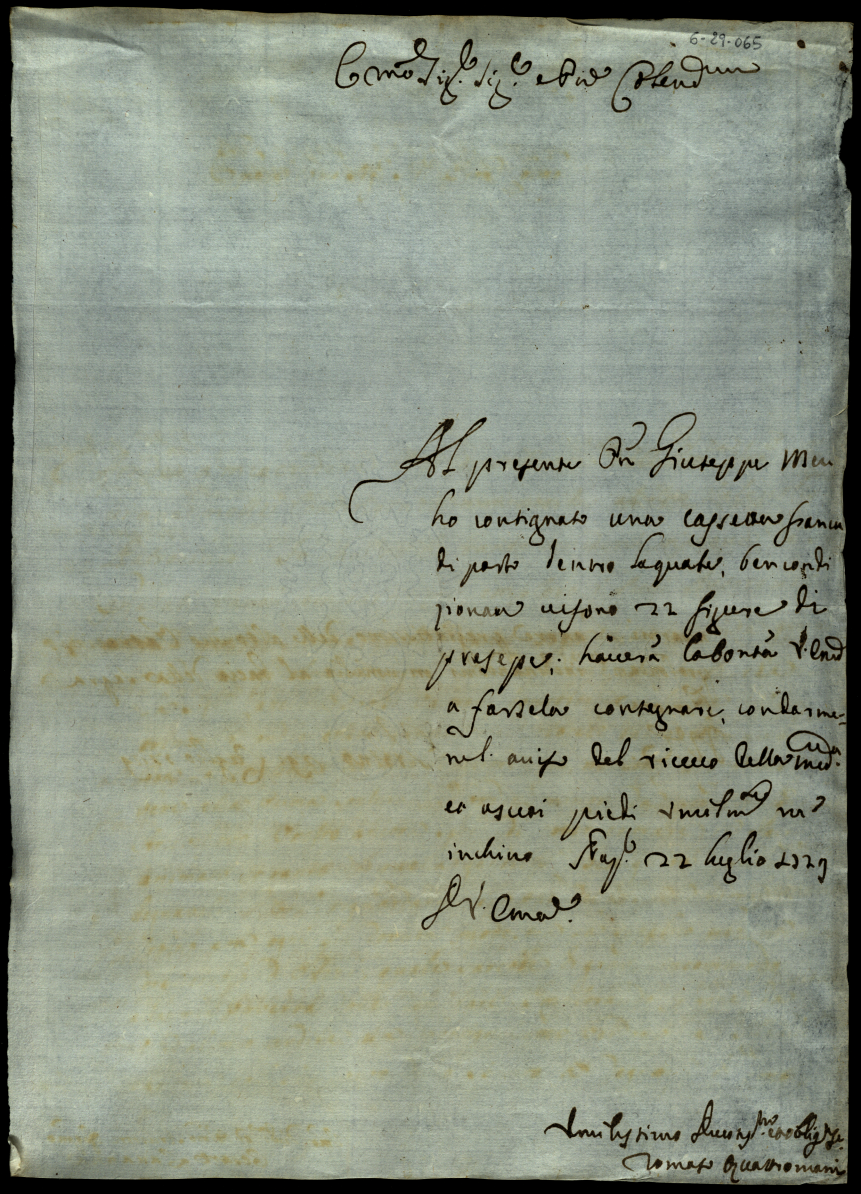 6-29-065
Em.o Sig.r Sig.r e P.ne Colend.mo
Al presente P.n Giuseppe
ho consignato una cassetta franca
di porto dentro laquale, ben condi
zionate vi sono 22 figure di
presepe; haverà la bontà V. Em.
a farsela consegnare, con darme
nel aviso del ricevo della med.ma
et a suoi piedi umilm.te m'
inchino Nap.li 22 luglio 1729
D. V. Em.a
Umilissimo Devotis.mo et oblig.mo Se.
Tomaso Quattromani